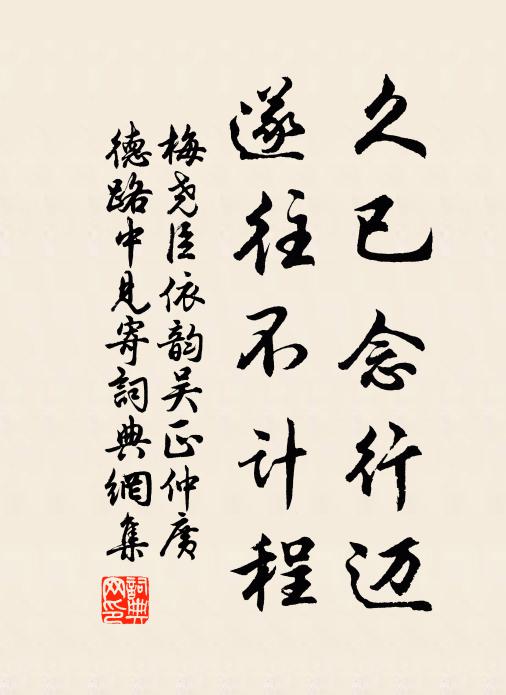 久已念行迈
遂往不计程
梅尧臣依韵吴正仲广
德路中见寄詞典網集
詞典网印